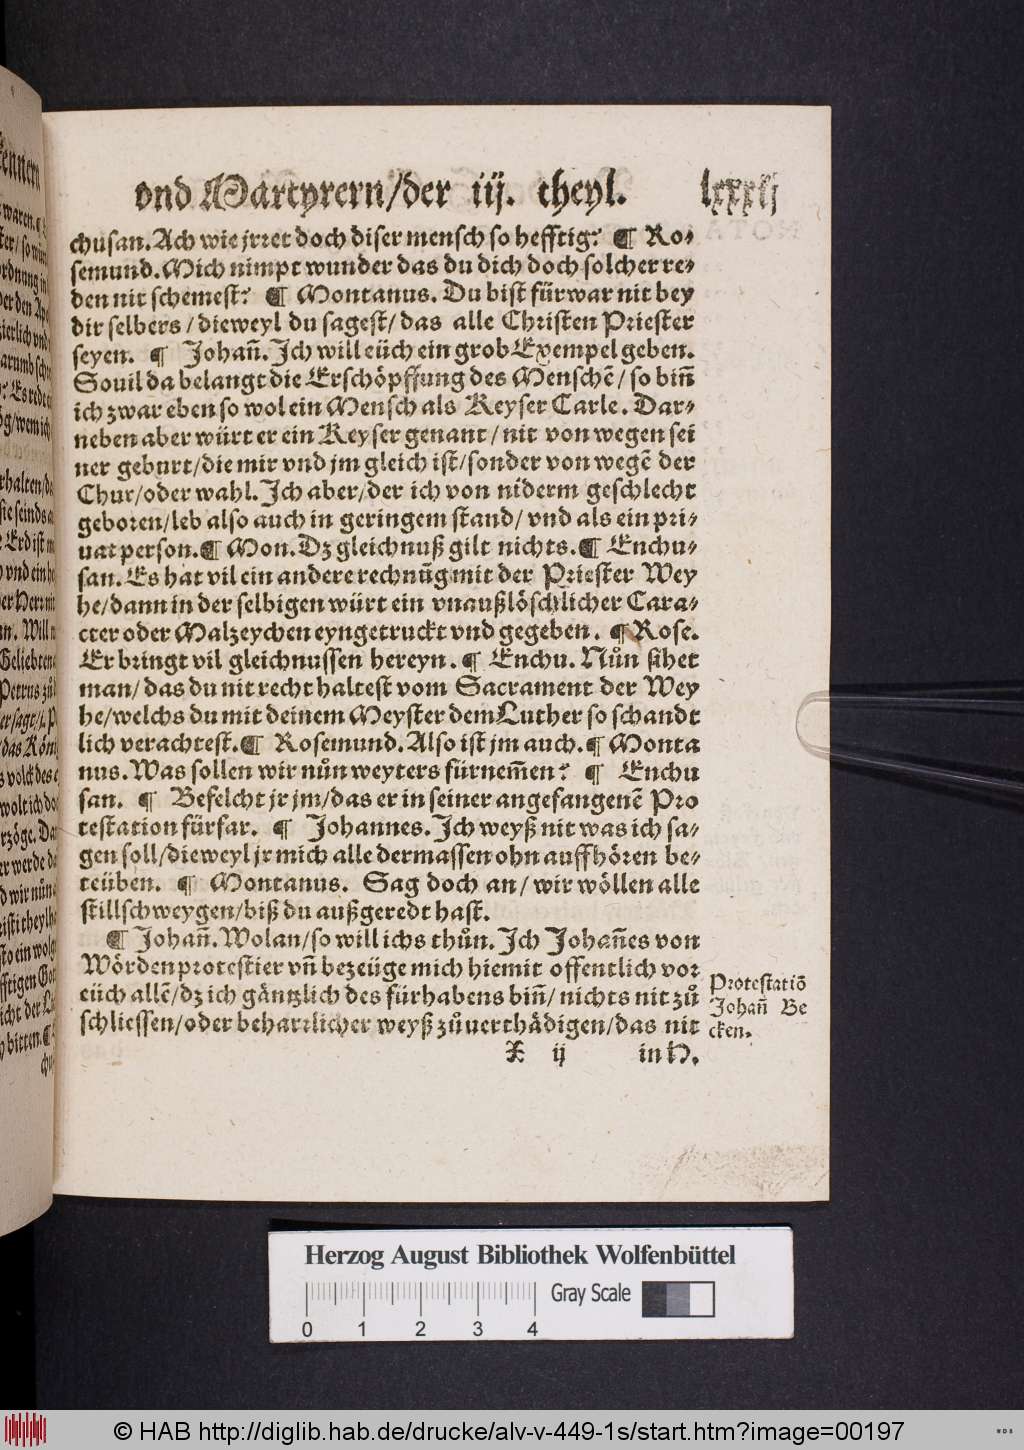 vnd Martyrern/der iij. theyl. lxxxij
chusan. Ach wie jrret doch diser mensch so hefftig? ¶ Ro-
semund. Mich nimpt wunder das du dich doch solcher re-
den nit schemest? ¶ Montanus. Du bist fürwar nit bey
dir selbers / dieweyl du sagest/ das alle Christen Priester
seyen. ¶ Johañ. Jch will eüch ein grob Exempel geben.
Souil da belangt die Erschöpffung des Menschē/ so biñ
ich zwar eben so wol ein Mensch als Keyser Carle. Dar-
neben aber würt er ein Keyser genant / nit von wegen sei
ner geburt/die mir vnd jm gleich ist/sonder von wegē der
Chur/oder wahl. Jch aber/der ich von niderm geschlecht
geboren/leb also auch in geringem stand/ vnd als ein pri-
uat person.¶ Mon. Dz gleichnuß gilt nichts.¶ Enchu-
san. Es hat vil ein andere rechnūg mit der Priester Wey
he/dann in der selbigen würt ein vnaußlöschlicher Cara-
cter oder Malzeychen eyngetruckt vnd gegeben. ¶ Rose.
Er bringt vil gleichnussen hereyn. ¶ Enchu. Nůn sihet
man/ das du nit recht haltest vom Sacrament der Wey
he/welchs du mit deinem Meyster dem Luther so schandt
lich verachtest.¶ Rosemund. Also ist jm auch.¶ Monta
nus. Was sollen wir nůn weyters fürnem̃en? ¶ Enchu
san. ¶ Befelcht jr jm/das er in seiner angefangenē Pro
testation fürfar. ¶ Johannes. Jch weyß nit was ich sa-
gen soll/dieweyl jr mich alle dermassen ohn auffhören be-
teüben. ¶ Montanus. Sag doch an/ wir wöllen alle
stillschweygen/biß du außgeredt hast.
¶ Johañ. Wolan/so will ichs thůn. Jch Johañes von
Wörden protestier vñ bezeüge mich hiemit offentlich vor
eüch allē/dz ich gäntzlich des fürhabens biñ/ nichts nit zů
schliessen/oder beharrlicher weyß zůuerthädigen/das nit
Protestatiō
Johañ Be
cken.
X ij in H.
Herzog August Bibliothek Wolfenbüttel
0 1 2 3 4
Gray Scale
© HAB http://diglib.hab.de/drucke/alv-v-449-1s/start.htm?image=00197